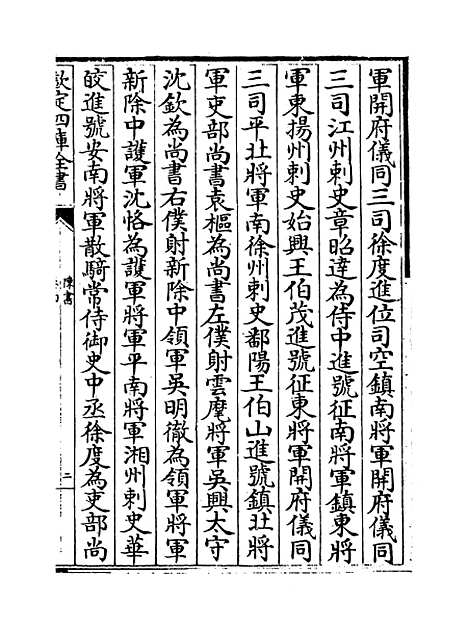 軍開府儀同三司徐度進位司空鎮南將軍開府儀同
三司江州刺史章昭達為侍中進號征南將軍鎮東將
軍東揚州刺史始興王伯茂進號征東將軍開府儀同
三司平北將軍南徐州刺史鄱陽王伯山進號鎮北將
軍吏部尚書袁樞為尚書左僕射雲麾將軍吳興太守
沈欽為尚書右僕射新除中領軍吳明徹為領軍將軍
新除中護軍沈恪為護軍將軍平南將軍湘州刺史華
皎進號安南將軍散騎常侍御史中丞徐度為吏部尚
欽定四庫全書
陳書
卷四
二